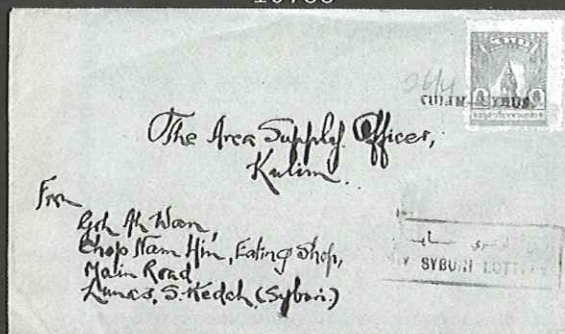 26/4
The Area Supply Officer,
Kulim.
From
Goh Ah Woon,
Chop Nam Hin, Eating Shop,
Main Road
Lunas, S. Kedah (Syburi.)
SYBURI LOTTERY